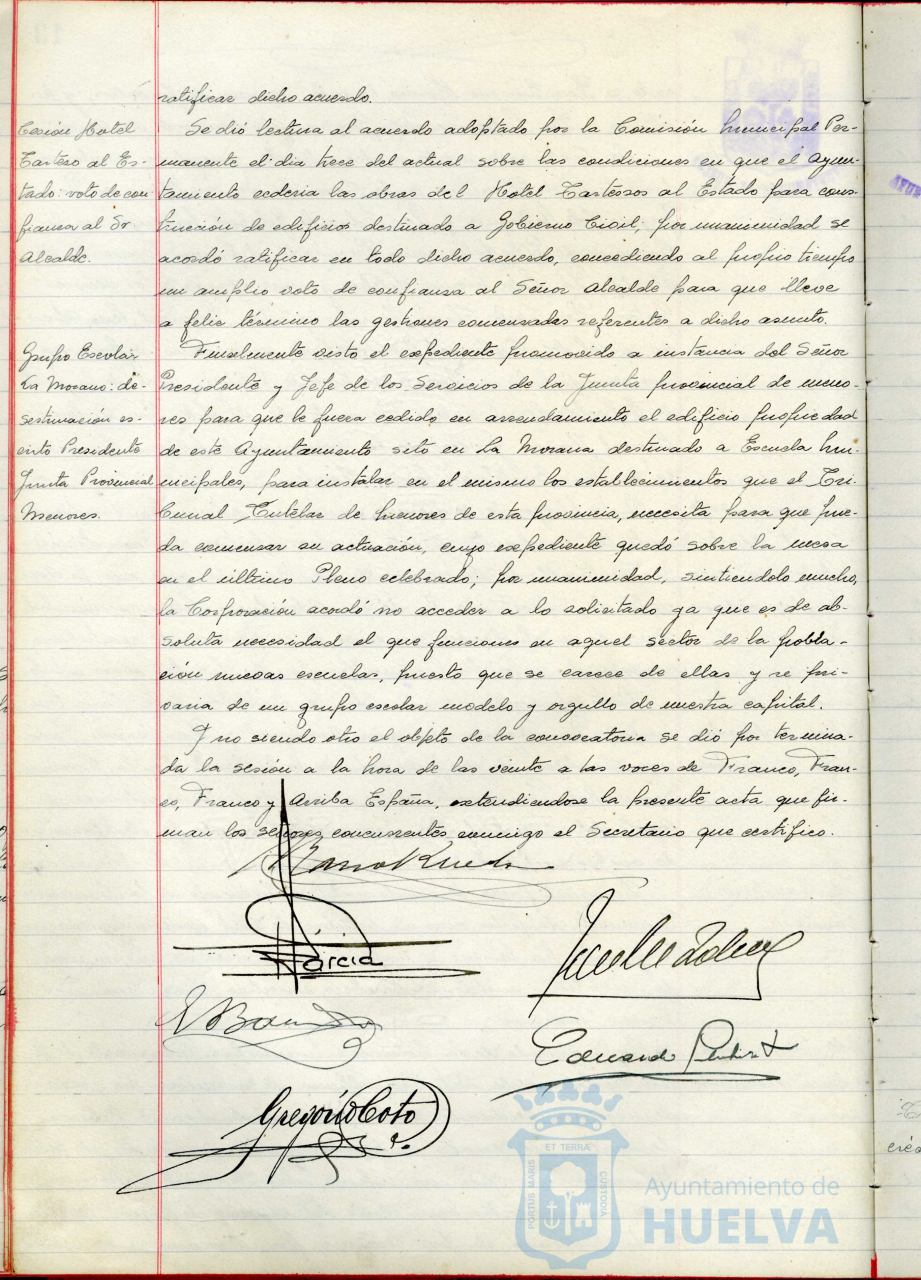 ratificar dicho acuerdo.
Cesión Hotel
Tartero al Es-
tado: voto de con
fianza al Sr
Alcalde.
Se dió lectura al acuerdo adoptado por la Comisión Municipal Per-
manente el dia trece del actual sobre las condiciones en que el Ayun-
tamiento cederia las obras del Hotel Tartessos al Estado para cons-
trucción de edificios destinado a Gobierno Civil; por unanimidad se
acordó ratificar en todo dicho acuerdo, concediendo al propio tiempo
un amplio voto de confianza al Señor Alcalde para que lleve
a feliz término las gestiones comenzadas referentes a dicho asunto.
Grupo Escolar
La Morano: de-
sestimación es-
crito Presidente
Junta Provincial
Menores.
Finalmente visto el expediente promovido a instancia del Señor
Presidente y Jefe de los Servicios de la Junta provincial de meno-
res para que le fuera cedido en arrendamiento el edificio propiedad
de este Ayuntamiento sito en La Morana destinado a Escuela Mu-
nicipales, para instalar en el mismo los establecimientos que el Tri-
bunal Tutelar de Menores de esta provincia, necesita para que pue-
da comenzar su actuación, cuyo expediente quedó sobre la mesa
en el último Pleno celebrado; por unanimidad, sintiendolo mucho,
la Corporación acordó no acceder a lo solicitado ya que es de ab-
soluta necesidad el que funciones en aquel sector de la pobla-
ción nuevas escuelas, puesto que se carece de ellas y se pri-
varia de un grupo escolar modelo y orgullo de nuestra capital.
Y no siendo otro el objeto de la convocatoria se dió por termina-
da la sesión a la hora de las veinte a las voces de Franco, Fran-
co, Franco y Arriba España, extendiendose la presente acta que fir-
man los señores concurrentes conmigo el Secretario que certifico.
García
Eduardo
Gregorio Coto
PORTUS MARIS
ET TERRÆ
CUSTODIA
Ayuntamiento de
HUELVA